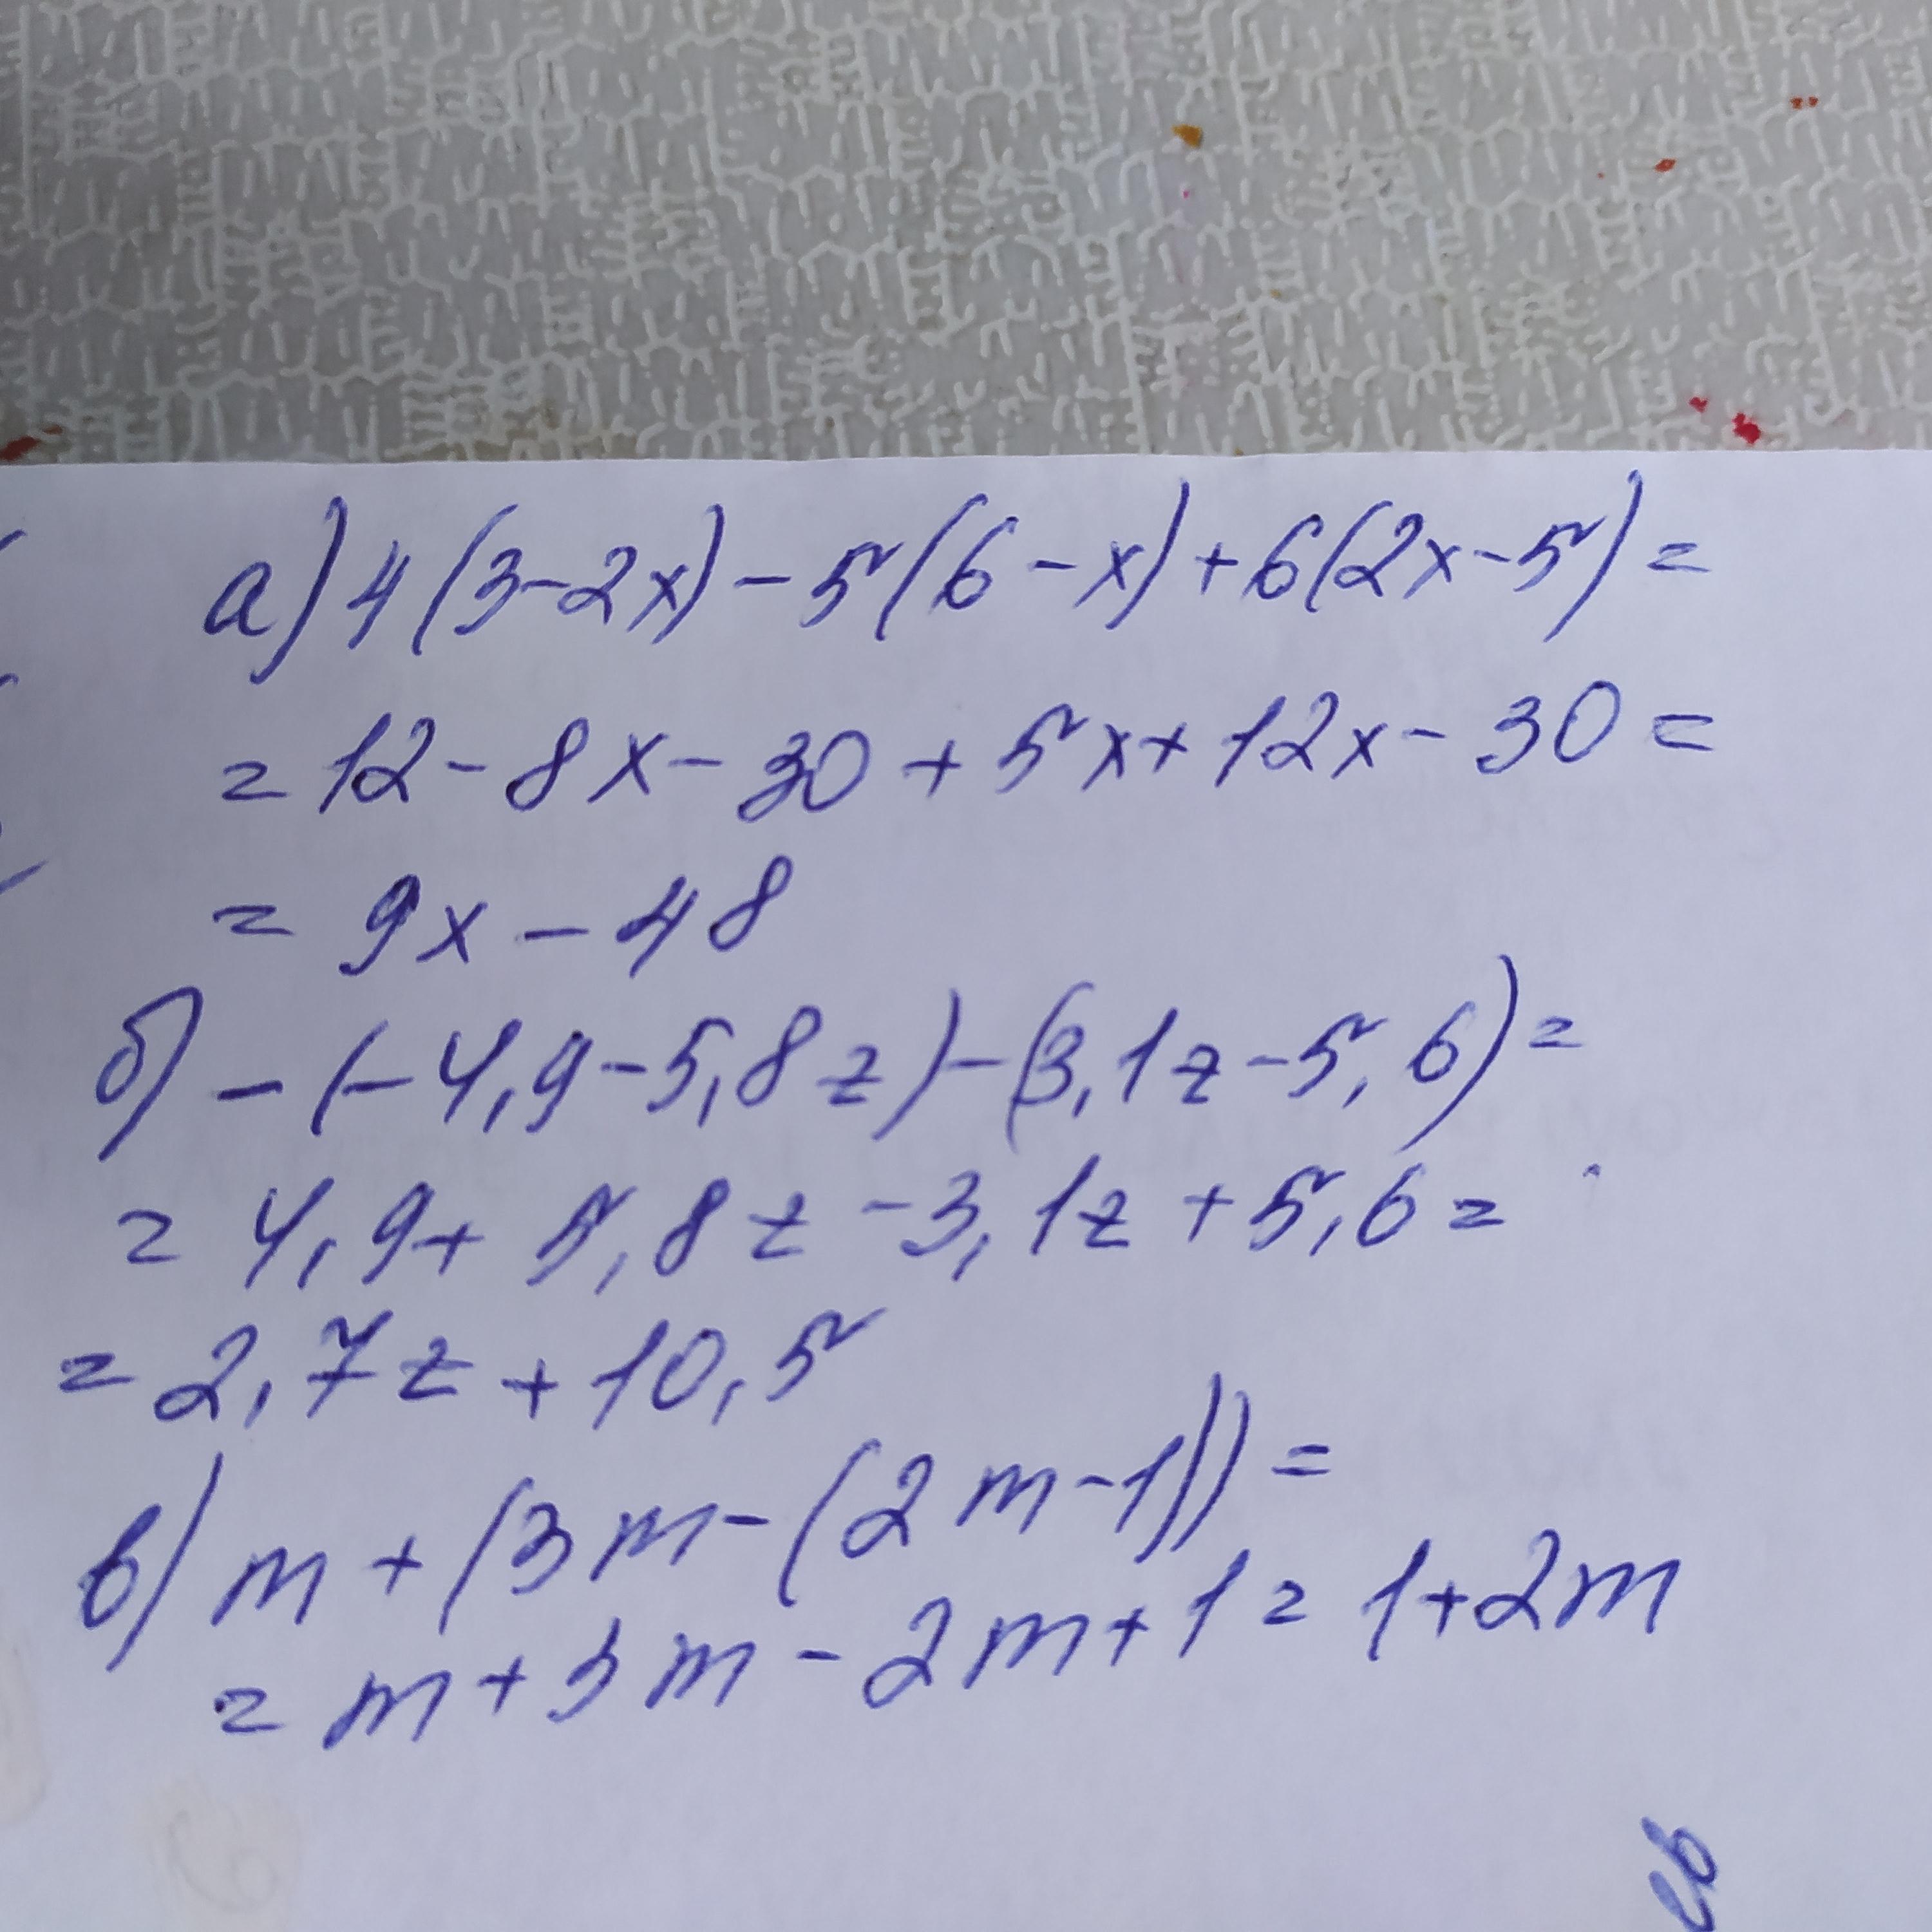 а) 4(3-2x)-5(6-x)+6(2x-5)=
=12-8x-30+5x+12x-30=
=9x-48
б) -(-4,9-5,8z)-(3,1z-5,6)=
=4,9+5,8z-3,1z+5,6=
=2,7z+10,5
в) m+(3m-(2m-1))=
=m+3m-2m+1=1+2m